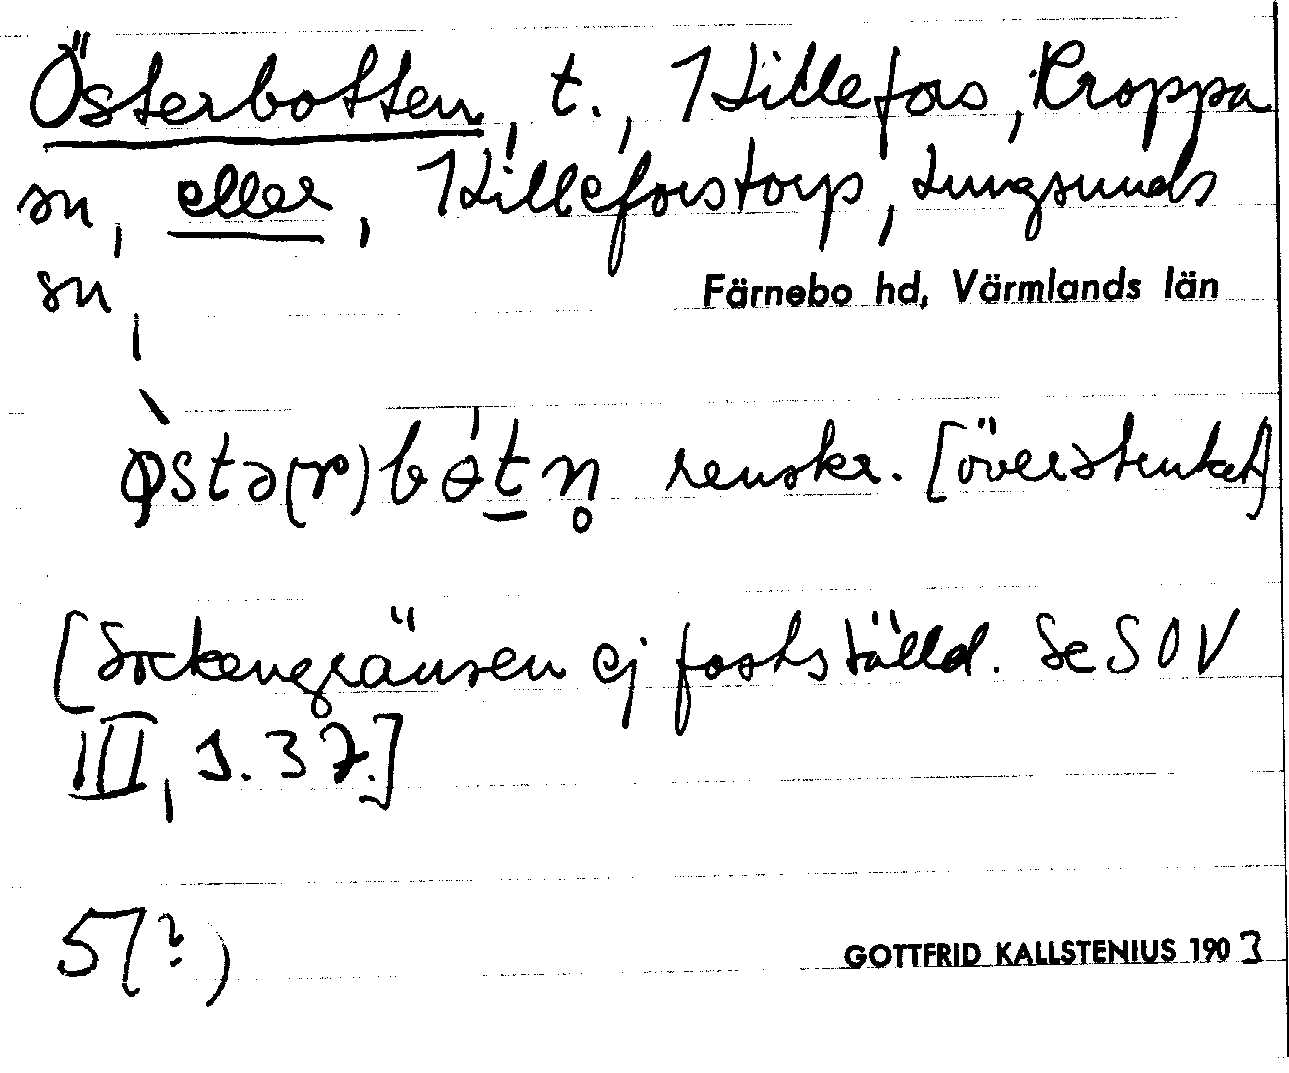 Österbotten, t., Hillefors, Kroppa
sn, eller, Hilleforstorp, Lungsunds
sn,
Färnebo hd, Värmlands län
φ̀stə(r)bɵ́tn̥ renskr. [överstruket]
[Sockengränsen ej fastställd. Se SOV
III, s. 37.]
5(?)
GOTTFRID KALLSTENIUS 1903